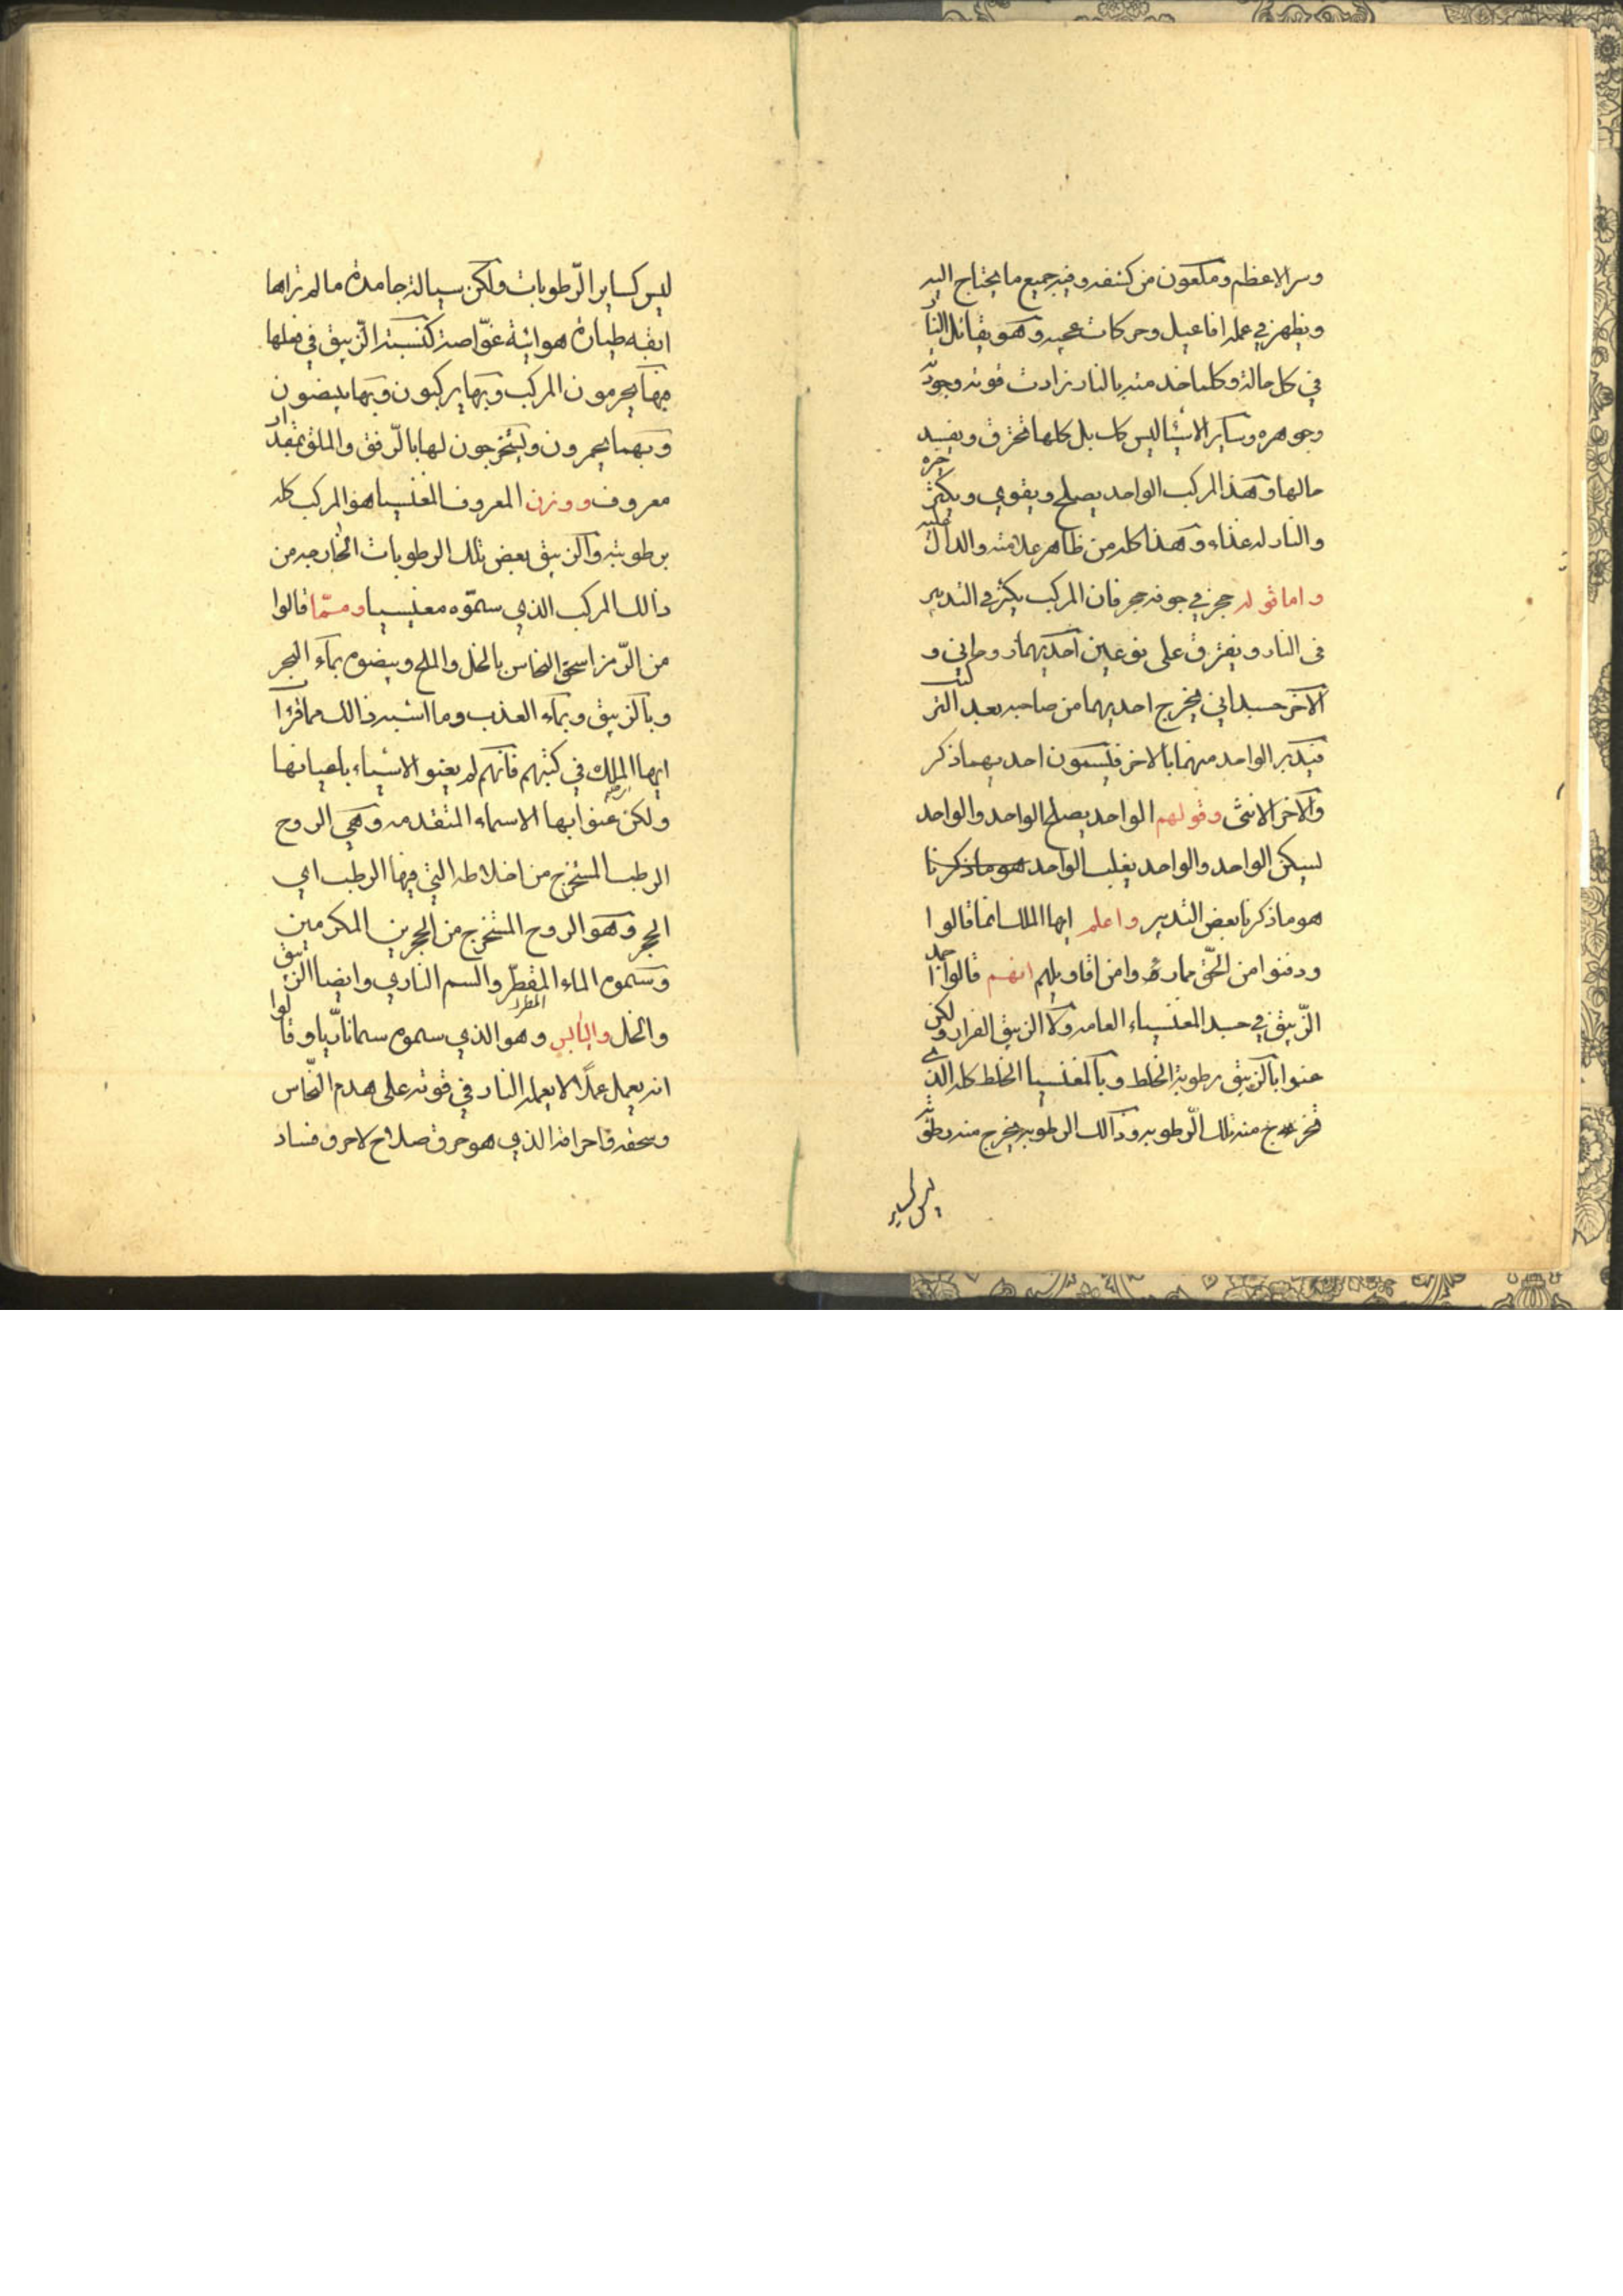 وسر الاعظم وملعون من كشفه وفيه جميع ما يحتاج اليه
ويظهر في عمله افاعيل وحركات عجيبه وهو يقاتل النار
في كل حالة وكلما خدمته بالنار زادت قوته وجودته
وجوهره وساير الاشيا ليس كك بل كلها تحترق ويفسد
حالها وهذا المركب الواحد يصلح ويقوي ويكثر خيره
والنار له غذاء وهذا كله من ظاهر علامته والدال عليه
واما قوله حجر في جوفه حجر فان المركب يكثر في التدبير
في النار ويفترق على نوعين احديهما روحاني و
الاخر جسداني يخرج احديهما من صاحبه بعد التركيب
فيدبر الواحد منهما بالاخر فيسمون احديهما ذكر
والاخر الانثى وقولهم الواحد يصلح الواحد والواحد
ليسكن الواحد والواحد يغلب الواحد هو ما ذكرنا
هو ما ذكرنا بعض التدبير واعلم ايها الملك انما قالوا
ودفنوا من الحق مارة وامن اقاويلهم انهم قالوا اجمد
الزيبق في جسد المغنيسياء العامه ولا الزيبق الفرار ولكن
عنوا بالزيبق رطوبة الخلط وبالمغنيسيا الخلط كله الذي
تخرج منه تلك الرطوبه وذالك الرطوبه يخرج منه رطوبة
ليس كساير
ليس كساير الرطوبات ولكن سيالة جامدة مالم تراها
ابقه طيارة هوائية غواصة كنسبة الزيبق في فعلها
فبها يحرمون المركب وبها يركبون وبها يبيضون
وبهما يحمرون ويستخرجون لها بالرفق والملق بمقدار
معروف ووزن المعروف المغنيسيا هو المركب كله
برطوبته والزيبق بعض تلك الرطوبات الخارجه من
ذالك المركب الذي سموه مغنيسيا ومما قالوا
من الرمز اسحق النحاس بالخل والملح وبيضوه بماء البحر
وبالزيبق وبماء العذب وما اشبه ذالك مما قرئ
ايها الملك في كتبهم فانهم لم يعنو الاشياء باعيانها
ولكن عنوا بها الاسماء المتقدمه وهي الروح
الرطب المستخرج من اخلاطه التي فيها الرطب اي
الحجر وهو الروح المستخرج من الحجرين المكرمين
وسموه الماء المقطر والسم الناري وايضا الزيبق
المطر
والخل واليابس وهو الذي سموه سما ناريا وقالوا
انه يعمل عملا لا يعمله النار في قوته على هدم النحاس
وسحقه واحراقه الذي هو حرق صلاح لا حرق فساد